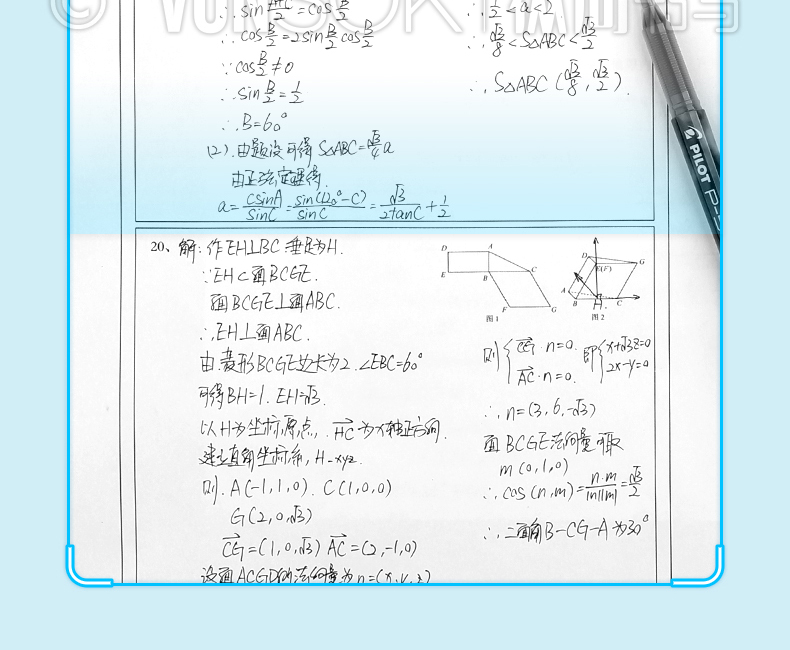 ∴ cos B/2 = 2sin B/2 cos B/2
∵ cos B/2 ≠ 0
∴ sin B/2 = 1/2
∴ B=60°
(2). 由题设可得 S△ABC = √3/4 a
由正弦定理得
a = csinA/sinC = sin(120°-C)/sinC = √3/2tanC + 1/2
∴ 1/2 < a < 2
∴ √3/8 < S△ABC < √3/2
∴, S△ABC (√3/8, √3/2).
PILOT
20、解: 作EH⊥BC 垂足为H.
∵EH⊂面BCGE.
面BCGE⊥面ABC.
∴,EH⊥面ABC.
由菱形BCGE边长为2.∠EBC=60°
可得BH=1. EH=√3.
以H为坐标原点, HC为x轴正方向.
建立直角坐标系, H-xyz.
则. A(-1,1,0). C(1,0,0)
G(2,0,√3)
CG=(1,0,√3) AC=(2,-1,0)
设面ACGD的法向量为n=(x,y,z)
D A
E B C
F G
图1
D E(F) G
A B H C
图2
则 { CG·n=0. AC·n=0. 即 { x+√3z=0 2x-y=0
∴, n=(3,6,-√3)
面BCGE法向量可取
m(0,1,0)
∴, cos(n,m)= n·m/|n||m| = √3/2
∴, 二面角B-CG-A为30°